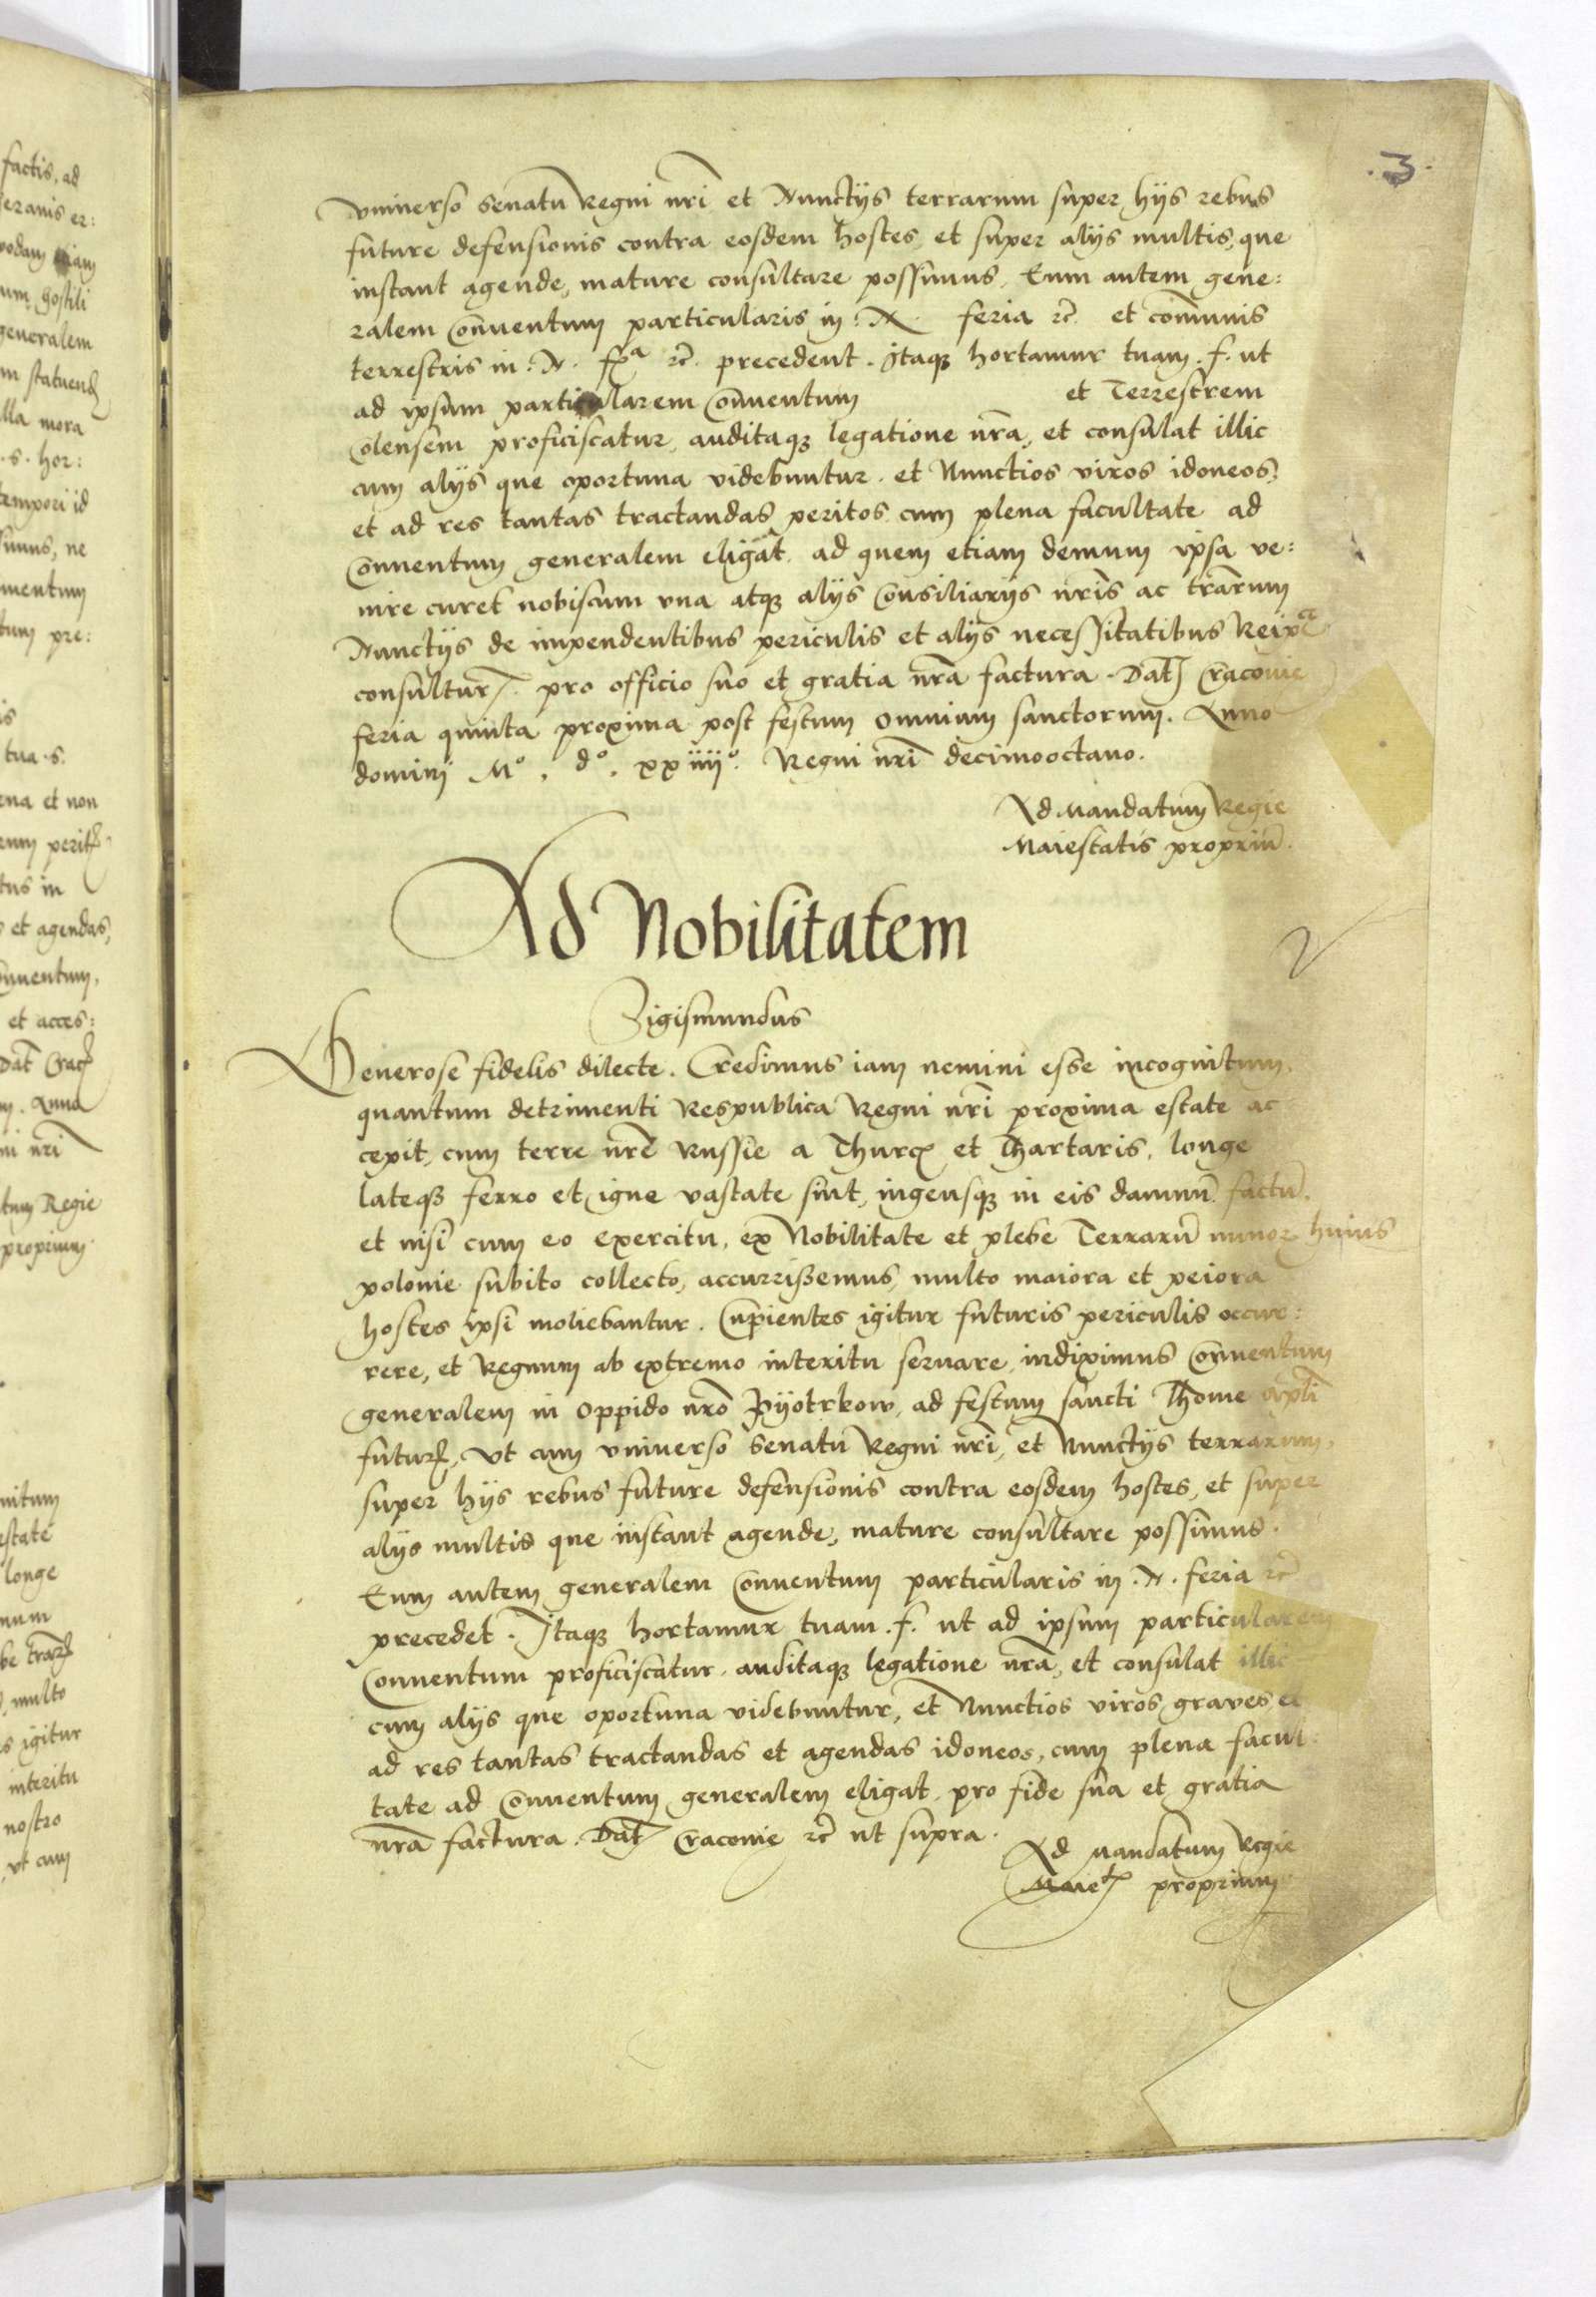 .3.
vniuerso senatu Regni nri et Nunctijs terrarum super hijs rebus
future defensionis contra eosdem hostes, et super alijs multis, que
instant agende, mature consultare possimus. Eum autem gene:
ralem Conuentum particularis in .N. feria etc. et communis
terrestris in .N. fra etc. precedent. Itaque hortamur tuam .f. ut
ad ipsum particularem Conuentum et Terrestrem
Colensem proficiscatur, auditaque legatione nra, et consulat illic
cum alijs que oportuna videbuntur. et Nunctios viros idoneos,
et ad res tantas tractandas peritos cum plena facultate ad
Conuentum generalem eligat. ad quem etiam demum ipsa ve:
nire curet nobiscum vna atque alijs Consiliarijs nris ac trarum
Nunctijs de impendentibus periculis et alijs necessitatibus Reipce
consultur. pro officio suo et gratia nra factura. Dat Cracouie
feria quinta proxima post festum omnium sanctorum. Anno
domini Mo. do. xxiiijo. Regni nri decimooctauo.
Ad Mandatum Regie
Maiestatis propriu.
Ad Nobilitatem
Sigismundus
Generose fidelis dilecte. Credimus iam nemini esse incognitum,
quantum detrimenti Respublica Regni nri proxima estate ac
cepit, cum terre nre Russie a Thurc et Thartaris, longe
lateque ferro et igne vastate sint, ingensque in eis damnu factu.
et nisi cum eo exercitu, ex Nobilitate et plebe Terraru minor huius
polonie subito collecto, accurrissemus, multo maiora et peiora
hostes ipsi moliebantur. Cupientes igitur futuris periculis occur:
rere, et Regnum ab extremo interitu seruare, indiximus Conuentum
generalem in oppido nro Pyotrkow, ad festum sancti Thome apli
futur, vt cum vniuerso Senatu Regni nri, et Nunctijs terrarum,
super hijs rebus future defensionis contra eosdem hostes, et super
alijs multis que instant agende, mature consultare possimus.
Eum autem generalem Conuentum particularis in .N. feria etc
precedet. Itaque hortamur tuam .f. ut ad ipsum particularem
Conuentum proficiscatur. auditaque legatione nra, et consulat illic
cum alijs que oportuna videbuntur, et Nunctios viros graues et
ad res tantas tractandas et agendas idoneos, cum plena facul:
tate ad Conuentum generalem eligat. pro fide sua et gratia
nra factura. Dat Cracouie etc ut supra.
Ad Mandatum Regie
Maietis proprium